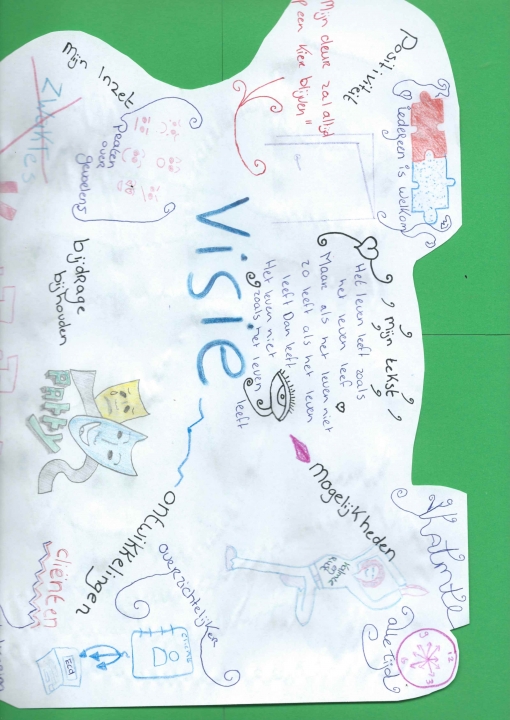 Visie
Positiviteit
iedereen is welkom
"Mijn deur zal altijd
op een kier blijven"
Mijn Inzet
praten
over
gevoelens
Zwaktes
bijdrage
bijhouden
PARTY
, mijn tekst ,
Het leven leeft zoals
het leven leef
Maar als het leven niet
zo leeft als het leven
leeft Dan leeft
Het leven niet
zoals het leven
leeft
Mogelijkheden
Kalmte
alle tijd
12
3
6
9
ontwikkelingen
overzichtelijker
Cliënten
Ecd